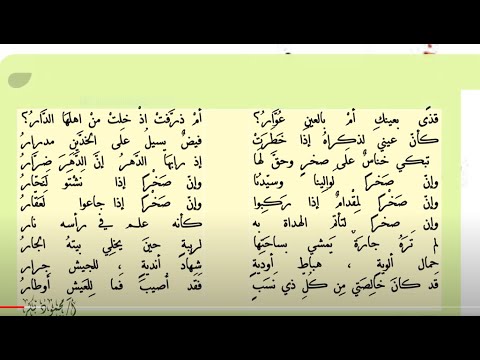 قذًى بعينكِ أمْ بالعينِ عُوَّارُ؟ أمْ ذرفتْ إذْ خلتْ منْ أهلهَا الدَّارُ؟
كأنَ عيني لذكراهُ إذَا خَطَرَتْ فيضٌ يسيلُ علَى الخدَّينِ مدرارُ
تبكي خناسٌ علَى صخرٍ وحقَّ لهَا إذ رابهَا الدَّهرُ إنَّ الدَّهرَ ضرَّارُ
وإنّ صَخراً لَوالِينا وسيّدُنا وإنّ صَخْراً إذا نَشْتو لَنَحّارُ
وإنّ صَخْراً لمِقْدامٌ إذا رَكِبوا وإنّ صَخْراً إذا جاعوا لَعَقّارُ
وإنّ صخراً لتأتمّ الهداة بهِ كأنه علم في رأسه نار
لم تَرَهُ جارَةٌ يَمشي بساحَتِها لريبةٍ حينَ يخلِي بيتهُ الجارُ
حمال ألوية ، هباط أودية شَهّادُ أنديةٍ ، للجيش جرار
قَد كانَ خالِصَتي مِن كُلِّ ذي نَسَبٍ فقد أُصيبَ فَما للعَيشِ أوطارُ